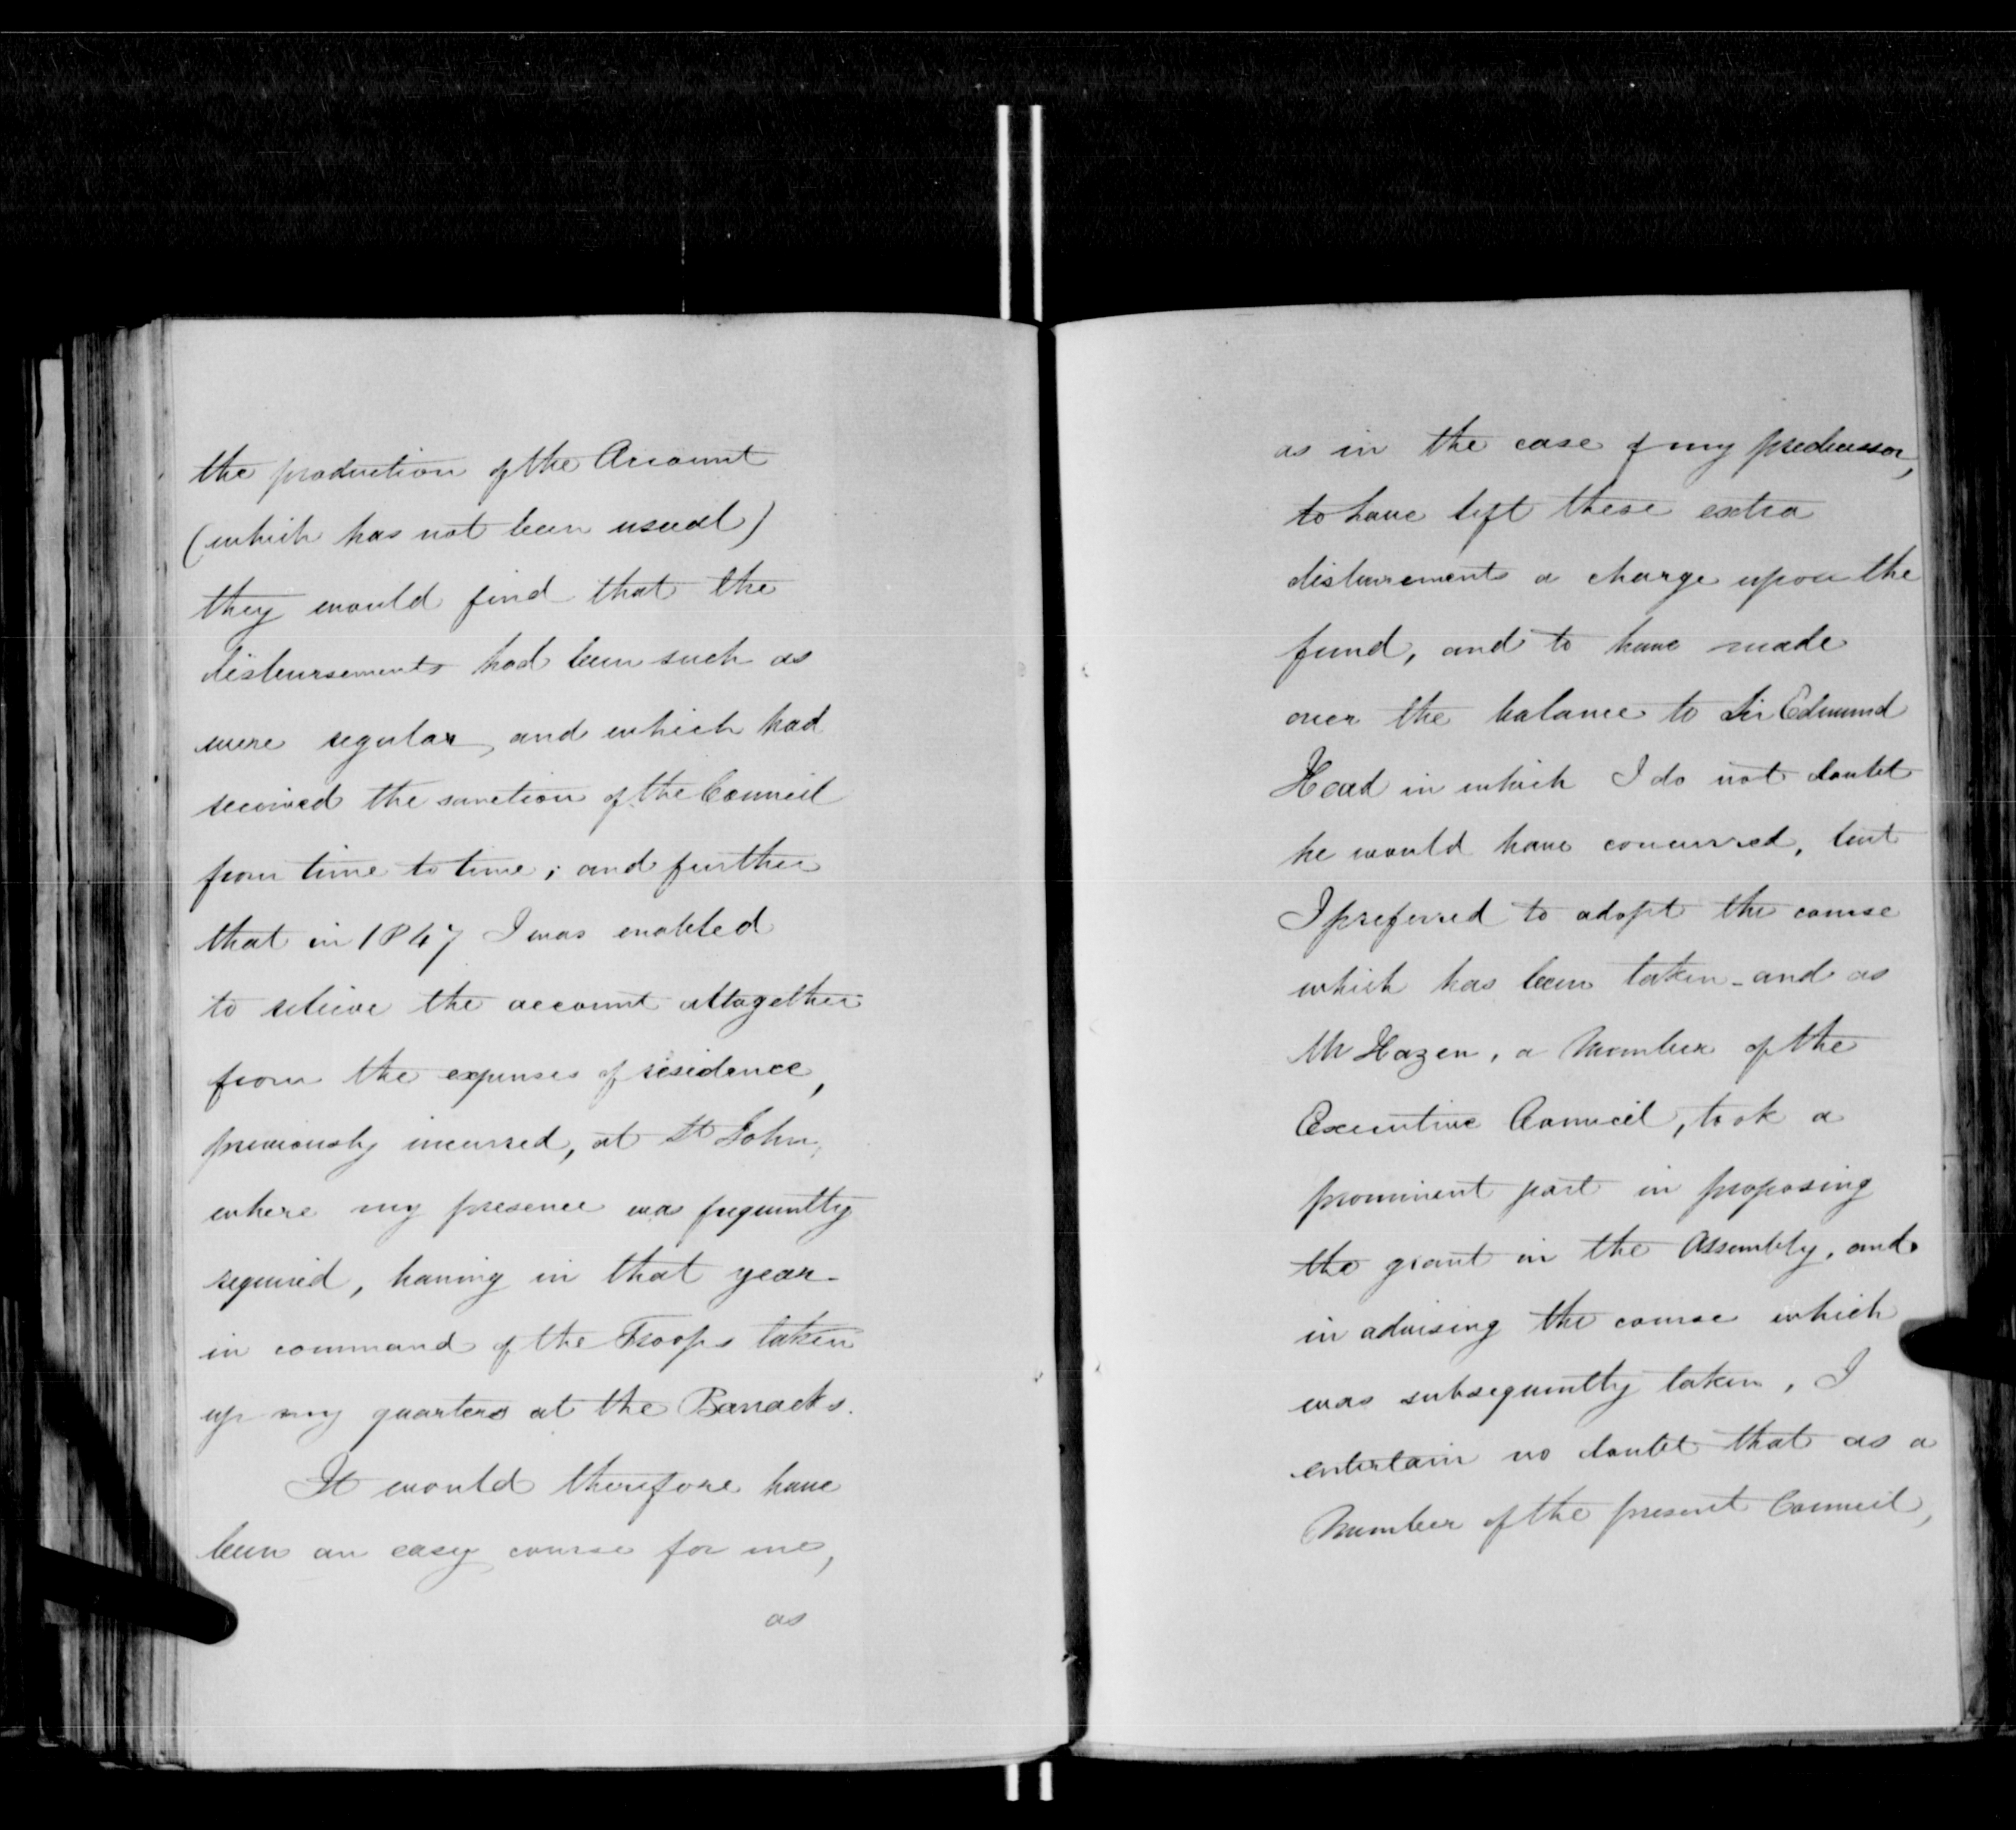 the production of the Account
(which has not been usual)
they would find that the
disbursements had been such as
were regular, and which had
received the sanction of the Council
from time to time; and further
that in 1847 I was enabled
to relieve the account altogether
from the expenses of residence,
previously incurred, at St John,
where my presence was frequently
required, having in that year
in command of the Troops taken
up my quarters at the Barracks.
It would therefore have
been an easy course for me,
as
as in the case of my predecessor,
to have left these extra
disbursements a charge upon the
fund, and to have made
over the balance to Sir Edmund
Head in which I do not doubt
he would have concurred, but
I preferred to adopt the course
which has been taken - and as
Mr Hazen, a Member of the
Executive Council, took a
prominent part in proposing
the grant in the Assembly, and
in advising the course which
was subsequently taken, I
entertain no doubt that as a
Member of the present Council,